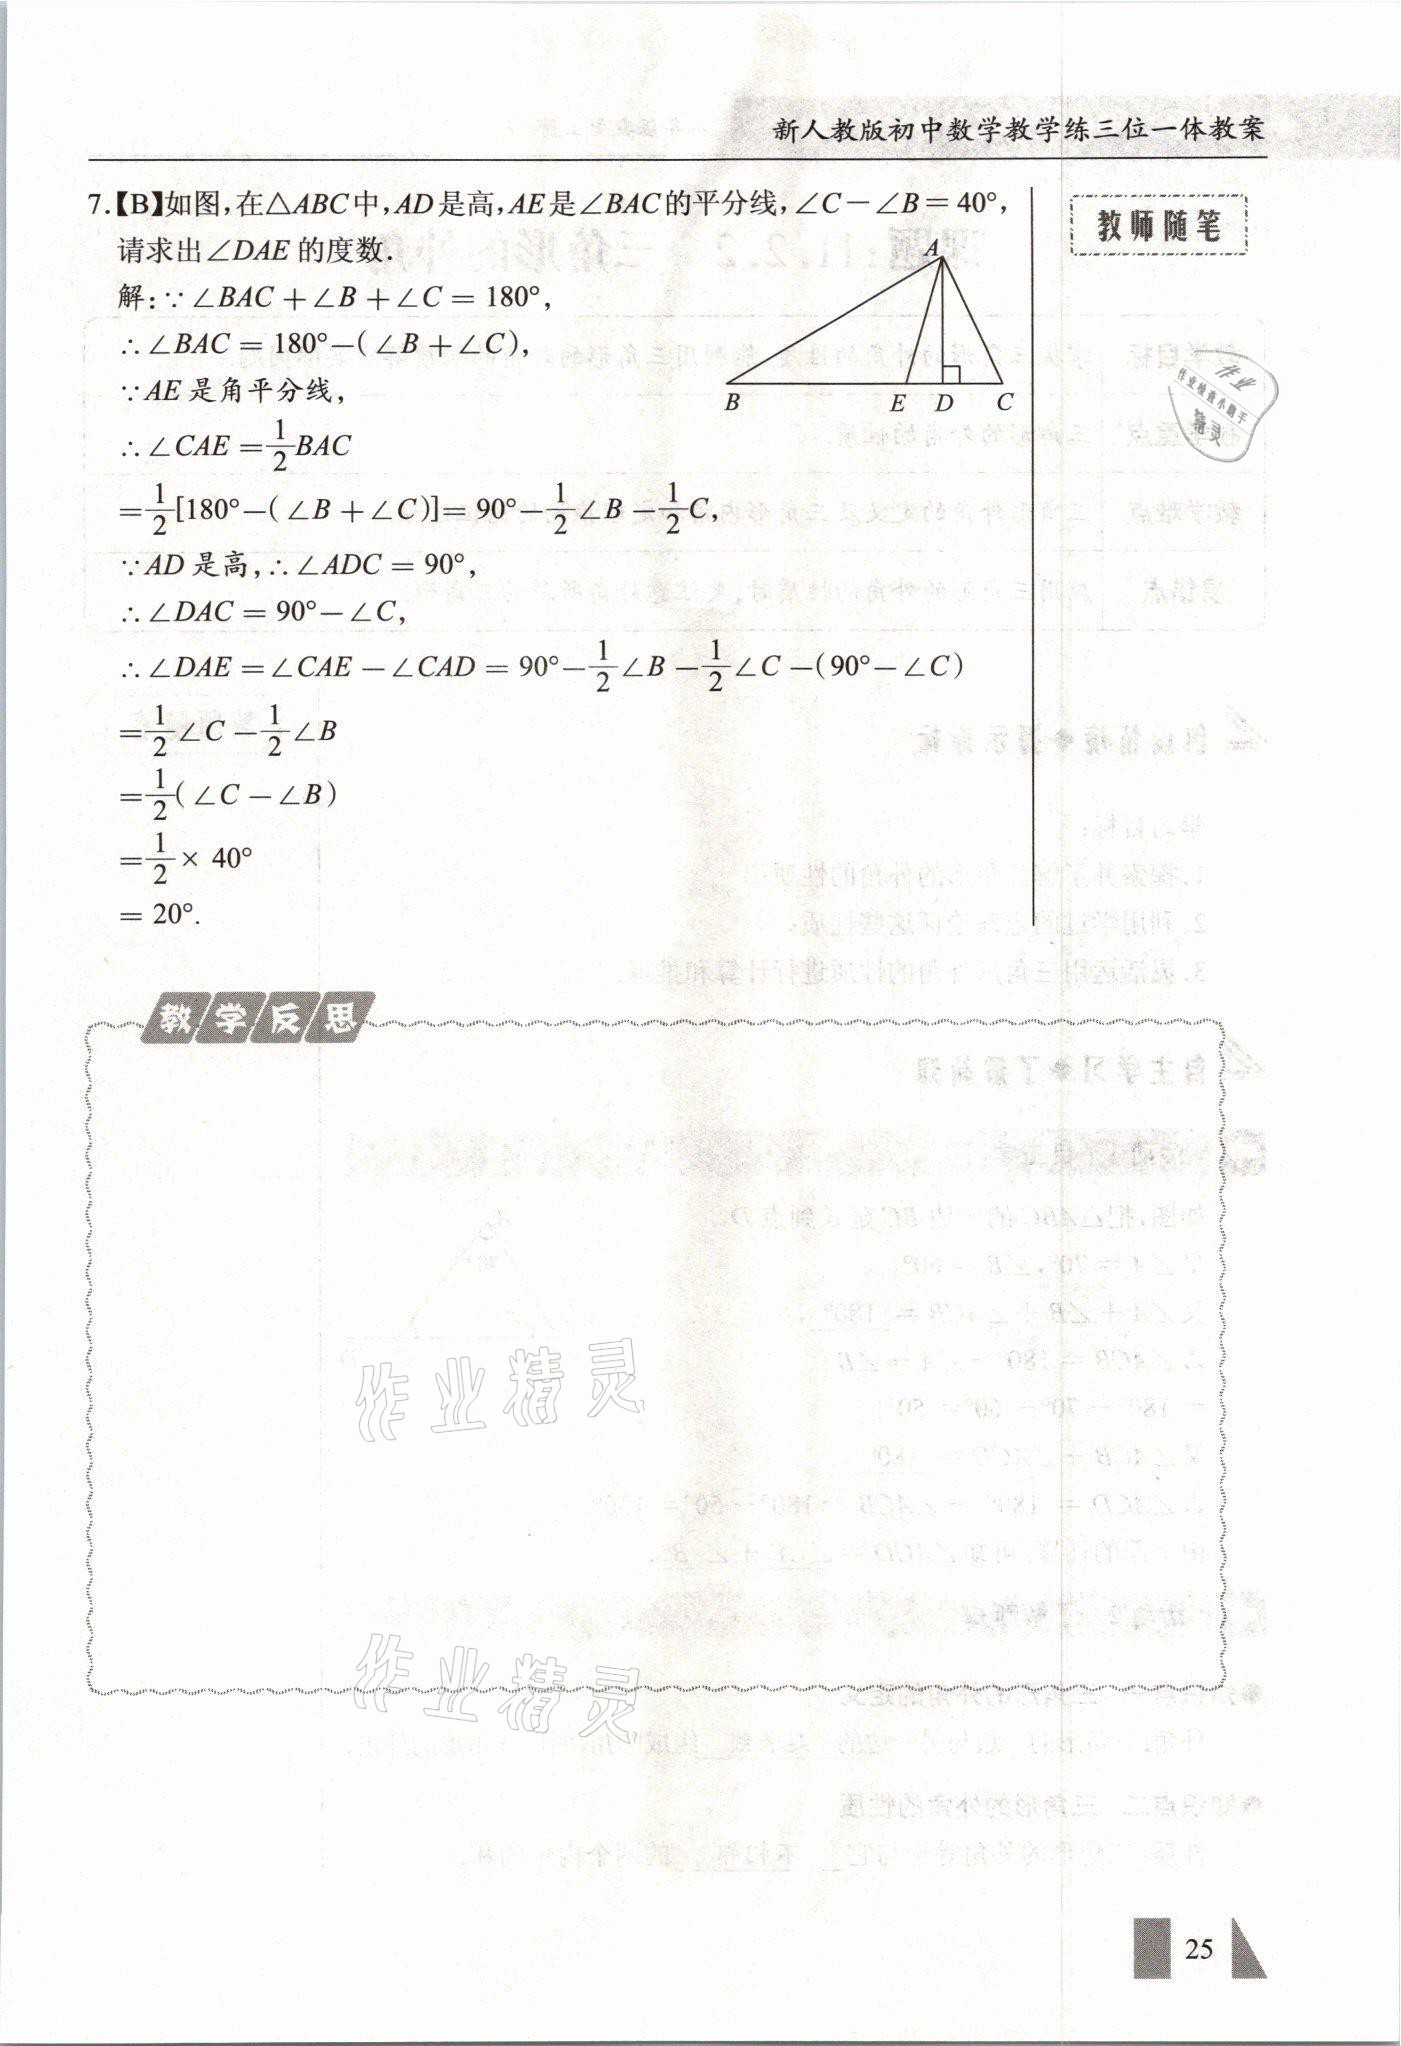 新人教版初中数学教学练三位一体教案
7.【B】如图,在△ABC中,AD是高,AE是∠BAC的平分线,∠C－∠B＝40°,
请求出∠DAE的度数.
解:∵∠BAC＋∠B＋∠C＝180°,
∴∠BAC＝180°－(∠B＋∠C),
∵AE是角平分线,
∴∠CAE＝1/2BAC
＝1/2[180°－(∠B＋∠C)]＝90°－1/2∠B－1/2C,
∵AD是高,∴∠ADC＝90°,
∴∠DAC＝90°－∠C,
∴∠DAE＝∠CAE－∠CAD＝90°－1/2∠B－1/2∠C－(90°－∠C)
＝1/2∠C－1/2∠B
＝1/2(∠C－∠B)
＝1/2×40°
＝20°.
A
B E D C
教师随笔
作业
作业检查小助手
精灵
教学反思
作业精灵
作业精灵
25